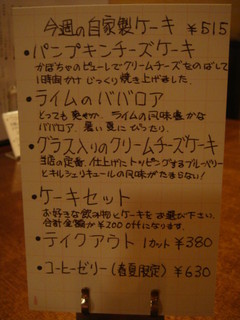 今週の自家製ケーキ ¥515
・パンプキンチーズケーキ
かぼちゃのピューレでクリームチーズをのばして
1時間かけじっくり焼き上げました。
・ライムのババロア
とっても爽やか、ライムの風味豊かな
ババロア。暑い夏にぴったり。
・グラス入りのクリームチーズケーキ
当店の定番。仕上げにトッピングするブルーベリー
とキルシュリキュールの風味がたまらない!
・ケーキセット
お好きな飲み物とケーキをお選び下さい。
合計金額が¥200 offになります。
・テイクアウト 1カット ¥380
・コーヒーゼリー(春夏限定) ¥630